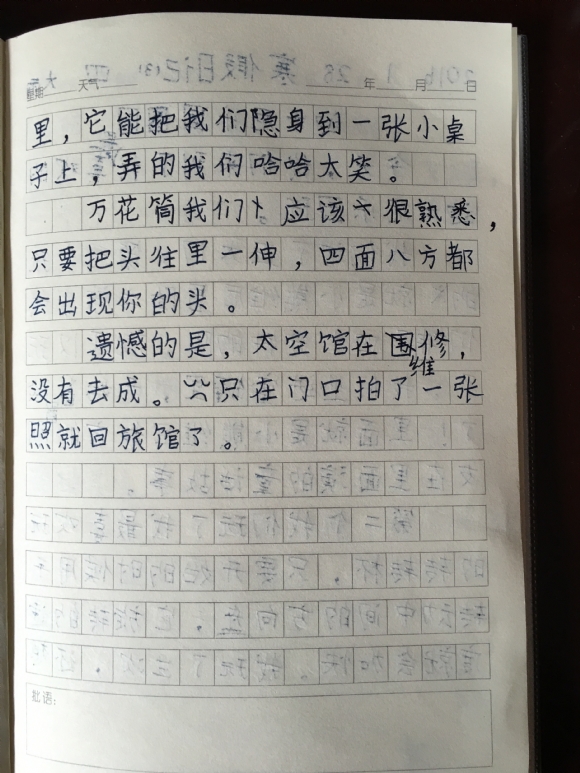 星期 天气 年 月 日
里，它能把我们隐身到一张小桌
子上，弄的我们哈哈大笑。
万花筒我们应该很熟悉，
只要把头往里一伸，四面八方都
会出现你的头。
遗憾的是，太空馆在维修，
没有去成。只在门口拍了一张
照就回旅馆了。
批语：